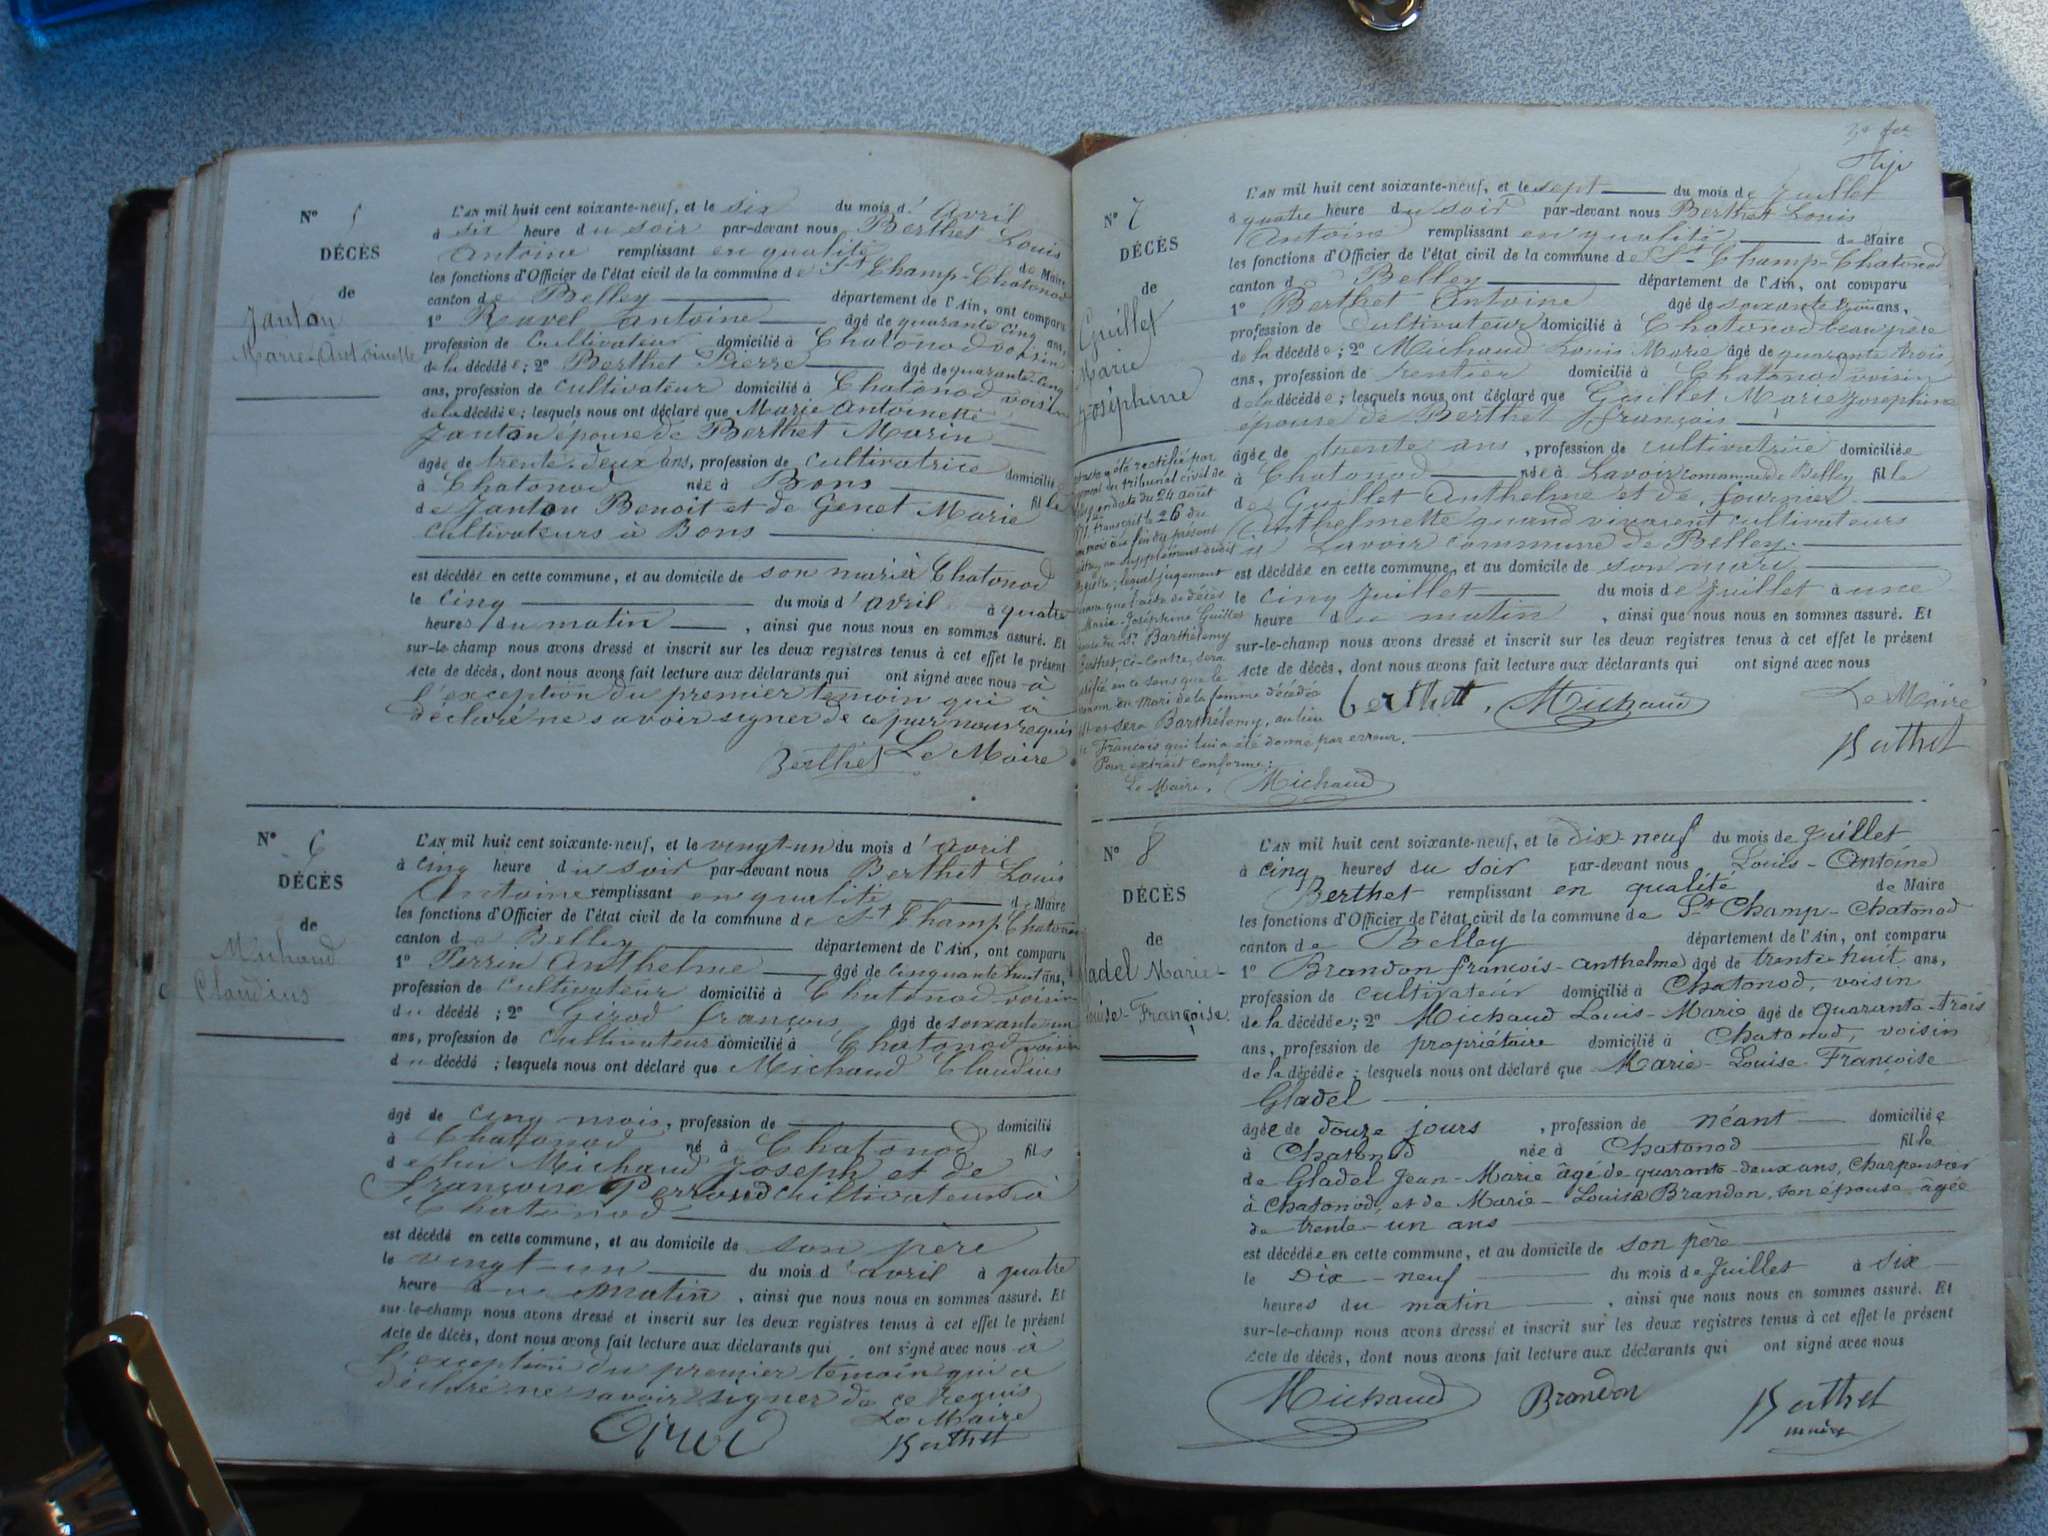 N° 5
DÉCÈS
de
Jantôn
Marie-Antoinette
L'AN mil huit cent soixante-neuf, et le six du mois d'avril
à six heure du soir par-devant nous Berthet Louis
Antoine remplissant en qualité de Maire
les fonctions d'Officier de l'état civil de la commune de St Champ-Chatonod
canton de Belley département de l'Ain, ont comparu
1° Ravel Antoine âgé de quarante cinq ans,
profession de Cultivateur domicilié à Chatonod voisin
de la décédée ; 2° Berthet Pierre âgé de quarante-cinq
ans, profession de cultivateur domicilié à Chatonod voisin
de la décédée ; lesquels nous ont déclaré que Marie Antoinette
Janton épouse de Berthet Marin
âgée de trente-deux ans, profession de cultivatrice domicilié
à Chatonod née à Bons fille
de Janton Benoit et de Genet Marie
cultivateurs à Bons
est décédée en cette commune, et au domicile de son mari à Chatonod
le cinq du mois d'avril à quatre
heures du matin , ainsi que nous nous en sommes assuré. Et
sur-le-champ nous avons dressé et inscrit sur les deux registres tenus à cet effet le présent
Acte de décès, dont nous avons fait lecture aux déclarants qui ont signé avec nous à
l'exception du premier temoin qui a
déclaré ne savoir signer de ce par nous requis
Berthet Le Maire
N° 6
DÉCÈS
de
Michaud
Claudius
L'AN mil huit cent soixante-neuf, et le vingt-un du mois d'avril
à cinq heure du soir par-devant nous Berthet Louis
Antoine remplissant en qualité de Maire
les fonctions d'Officier de l'état civil de la commune de St Champ Chatonod
canton de Belley département de l'Ain, ont comparu
1° Perrin Anthelme âgé de cinquante huit ans,
profession de cultivateur domicilié à Chatonod voisin
du décédé ; 2° Girod françois âgé de soixante-un
ans, profession de Cultivateur domicilié à Chatonod voisin
du décédé ; lesquels nous ont déclaré que Michaud Claudius
âgé de cinq mois, profession de domicilié
à Chatonod né à Chatonod fils
de lui Michaud Joseph et de
françoise Perroud cultivateurs à
Chatonod
est décédé en cette commune, et au domicile de son père
le vingt-un du mois d'avril à quatre
heure du matin , ainsi que nous nous en sommes assuré. Et
sur-le-champ nous avons dressé et inscrit sur les deux registres tenus à cet effet le présent
Acte de décès, dont nous avons fait lecture aux déclarants qui ont signé avec nous à
l'exception du premier témoin qui a
déclaré ne savoir signer de ce requis
Le Maire
Girod Berthet
N° 7
DÉCÈS
de
Guillet
Marie
Joséphine
a été rectifié par
jugement du tribunal civil de
en date du 24 août
transcrit le 26 du
mois à la fin du présent
supplément dudit
lequel jugement
que l'acte de décès
Marie-Joséphine Guillet
du Sr Barthélemy
Berthet, ci-contre, sera
rectifié en ce sens que le
prénom du mari de la femme décédée
est et sera Barthélemy, au lieu
de François qui lui a été donné par erreur.
Pour extrait conforme :
Le Maire, Michaud
L'AN mil huit cent soixante-neuf, et le sept du mois de Juillet
à quatre heure du soir par-devant nous Berthet Louis
Antoine remplissant en qualité de Maire
les fonctions d'Officier de l'état civil de la commune de St Champ-Chatonod
canton de Belley département de l'Ain, ont comparu
1° Berthet Antoine âgé de soixante trois ans,
profession de Cultivateur domicilié à Chatonod beau père
de la décédée ; 2° Michaud Louis Marie âgé de quarante trois
ans, profession de rentier domicilié à Chatonod voisin
de la décédée ; lesquels nous ont déclaré que Guillet Marie Josephine
épouse de Berthet françois
âgée de trente ans , profession de cultivatrice domiciliée
à Chatonod née à Lavoir commune de Belley fille
de Guillet Anthelme et de fournier
Anthelmette quand vivaient cultivateurs
à Lavoir commune de Belley.
est décédée en cette commune, et au domicile de son mari
le cinq Juillet du mois de Juillet à une
heure du matin , ainsi que nous nous en sommes assuré. Et
sur-le-champ nous avons dressé et inscrit sur les deux registres tenus à cet effet le présent
Acte de décès, dont nous avons fait lecture aux déclarants qui ont signé avec nous
berthet. Michaud Le Maire
Berthet
N° 8
DÉCÈS
de
ladel Marie-
Louise-Françoise.
L'AN mil huit cent soixante-neuf, et le dix-neuf du mois de Juillet
à cinq heures du soir par-devant nous Louis-Antoine
Berthet remplissant en qualité de Maire
les fonctions d'Officier de l'état civil de la commune de St Champ-Chatonod
canton de Belley département de l'Ain, ont comparu
1° Brandon françois-anthelme âgé de trente-huit ans,
profession de cultivateur domicilié à Chatonod, voisin
de la décédée ; 2° Michaud Louis-Marie âgé de quarante-trois
ans, profession de propriétaire domicilié à Chatonod, voisin
de la décédée ; lesquels nous ont déclaré que Marie-Louise Françoise
Gladel
âgée de douze jours , profession de néant domiciliée
à Chatonod née à Chatonod fille
de Gladel Jean-Marie âgé de quarante-deux ans, Charpentier
à Chatonod, et de Marie-Louise Brandon, son épouse âgée
de trente-un ans
est décédée en cette commune, et au domicile de son père
le Dix-neuf du mois de Juillet à six
heures du matin , ainsi que nous nous en sommes assuré. Et
sur-le-champ nous avons dressé et inscrit sur les deux registres tenus à cet effet le présent
Acte de décès, dont nous avons fait lecture aux déclarants qui ont signé avec nous
Michaud Brandon Berthet
maire